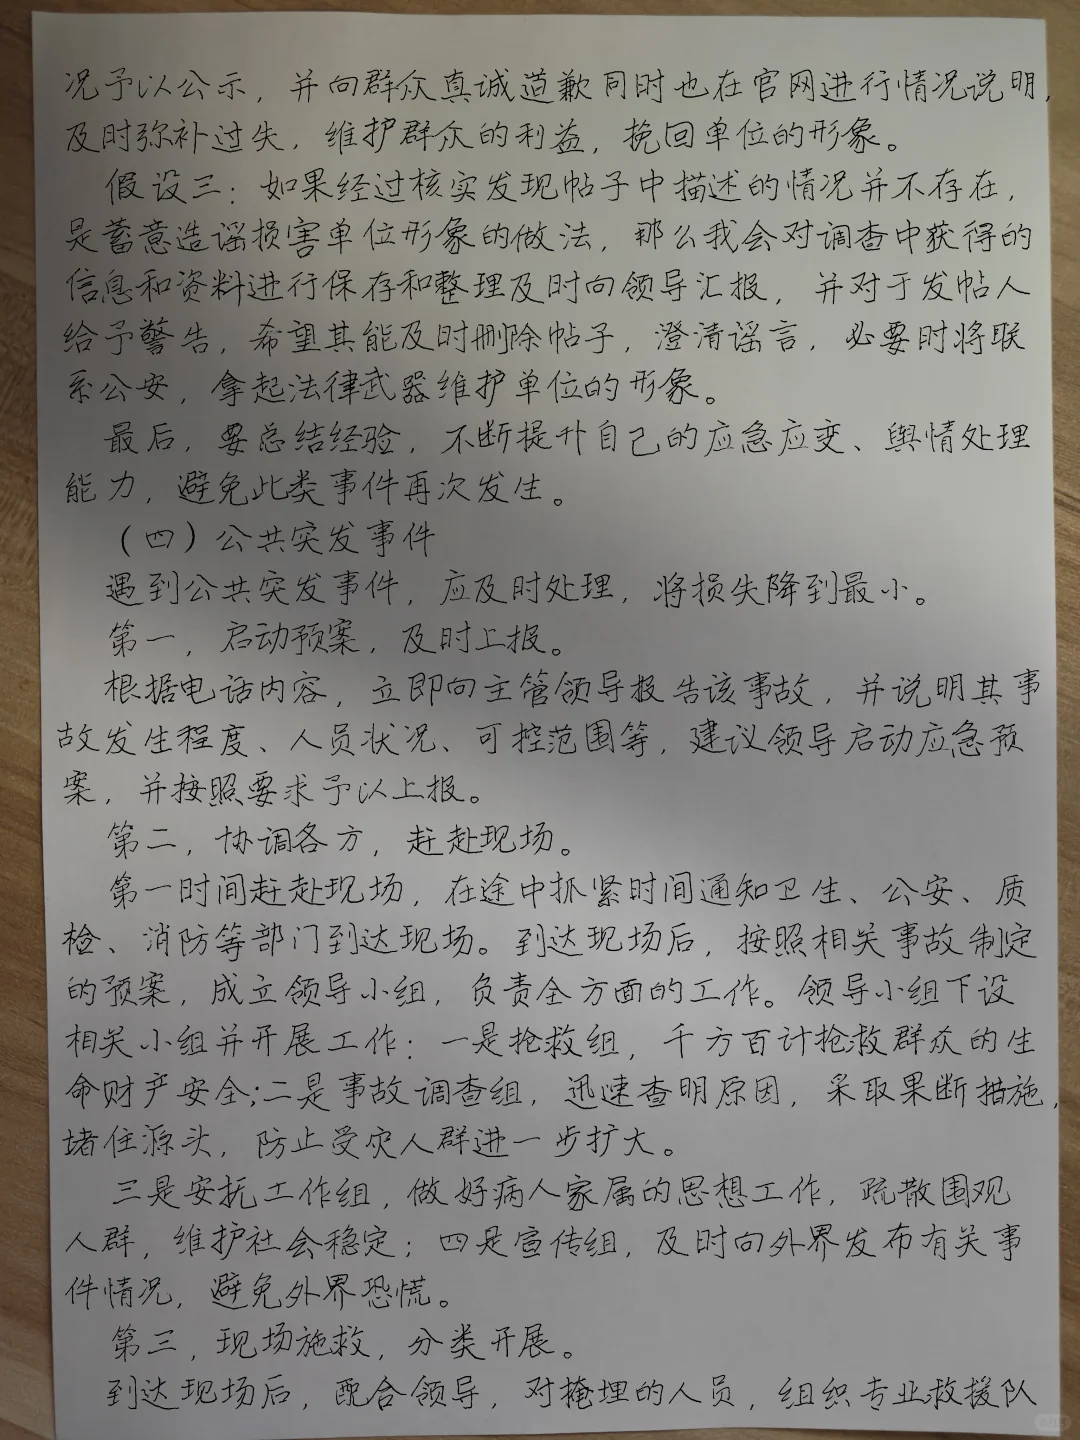 况予以公示，并向群众真诚道歉同时也在官网进行情况说明，
及时弥补过失，维护群众的利益，挽回单位的形象。
假设三：如果经过核实发现帖子中描述的情况并不存在，
是蓄意造谣损害单位形象的做法，那么我会对调查中获得的
信息和资料进行保存和整理及时向领导汇报，并对于发帖人
给予警告，希望其能及时删除帖子，澄清谣言，必要时将联
系公安，拿起法律武器维护单位的形象。
最后，要总结经验，不断提升自己的应急应变、舆情处理
能力，避免此类事件再次发生。
（四）公共突发事件
遇到公共突发事件，应及时处理，将损失降到最小。
第一，启动预案，及时上报。
根据电话内容，立即向主管领导报告该事故，并说明其事
故发生程度、人员状况、可控范围等，建议领导启动应急预
案，并按照要求予以上报。
第二，协调各方，赶赴现场。
第一时间赶赴现场，在途中抓紧时间通知卫生、公安、质
检、消防等部门到达现场。到达现场后，按照相关事故制定
的预案，成立领导小组，负责全方面的工作。领导小组下设
相关小组并开展工作：一是抢救组，千方百计抢救群众的生
命财产安全；二是事故调查组，迅速查明原因，采取果断措施，
堵住源头，防止受灾人群进一步扩大。
三是安抚工作组，做好病人家属的思想工作，疏散围观
人群，维护社会稳定；四是宣传组，及时向外界发布有关事
件情况，避免外界恐慌。
第三，现场施救，分类开展。
到达现场后，配合领导，对掩埋的人员，组织专业救援队